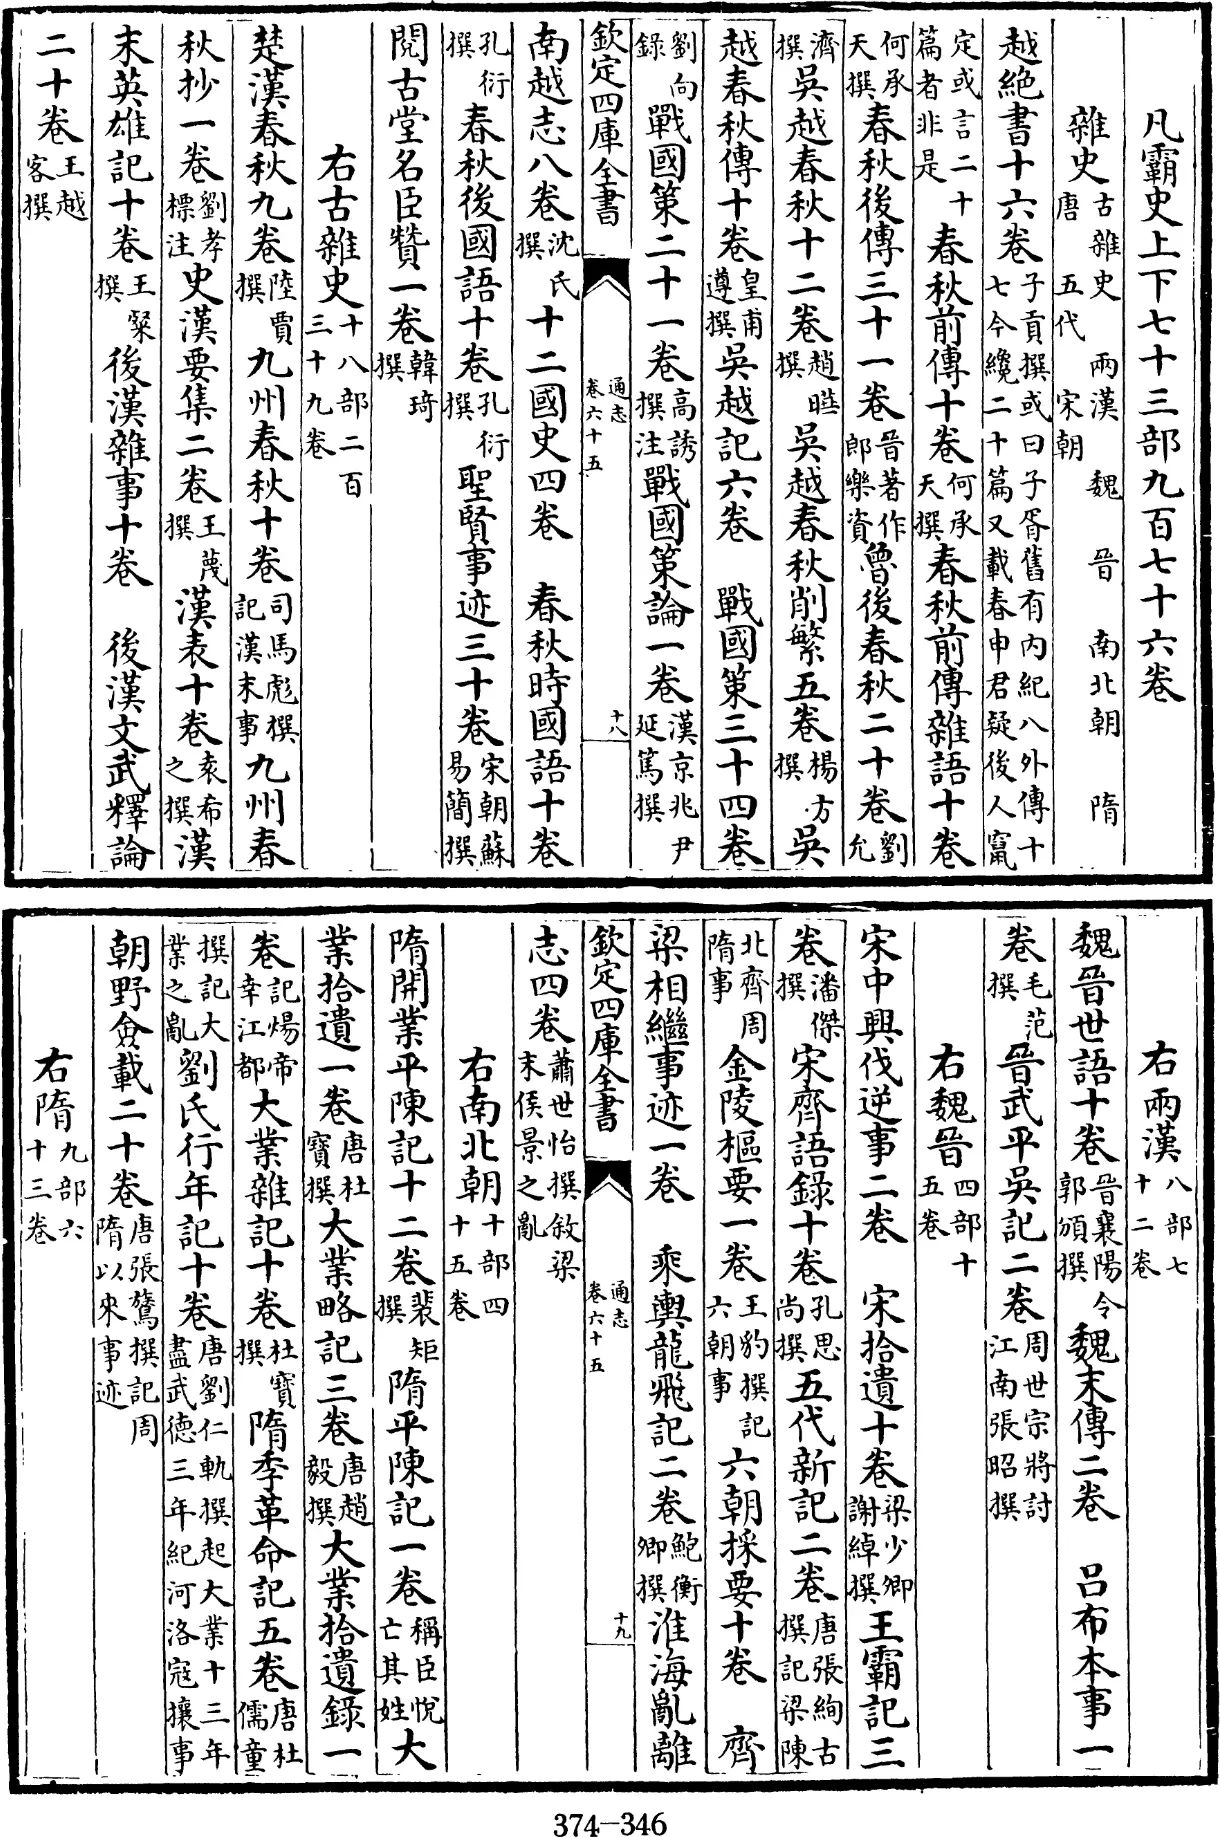 凡霸史上下七十三部九百七十六卷
雜史古雜史 兩漢 魏 晉 南北朝 隋唐 五代 宋朝
越絶書十六卷子貢撰或曰子胥舊有内紀八外傳十七今纔二十篇又載春申君疑後人竄
定或言二十篇者非是 春秋前傳十卷何承天撰春秋前傳雜語十卷
何承天撰春秋後傳三十一卷晉著作郎樂資魯後春秋二十卷劉允
濟撰吳越春秋十二卷趙曄撰 吳越春秋削繁五卷楊方撰 吳
越春秋傳十卷皇甫遵撰吳越記六卷 戰國策三十四卷
劉向錄 戰國策二十一卷高誘撰注戰國策論一卷漢京兆尹延篤撰
欽定四庫全書 通志卷六十五 十八
南越志八卷沈氏撰 十二國史四卷 春秋時國語十卷
孔衍撰 春秋後國語十卷孔衍撰 聖賢事迹三十卷宋朝蘇易簡撰
閱古堂名臣贊一卷韓琦撰
右古雜史十八部二百三十九卷
楚漢春秋九卷陸賈撰 九州春秋十卷司馬彪撰記漢末事九州春
秋抄一卷劉孝標注史漢要集二卷王蔑撰 漢表十卷袁希之撰漢
末英雄記十卷王粲撰 後漢雜事十卷 後漢文武釋論
二十卷王越客撰
右兩漢八部七十二卷
魏晉世語十卷晉襄陽令郭頒撰 魏末傳二卷 呂布本事一
卷毛范撰 晉武平吳記二卷周世宗將討江南張昭撰
右魏晉四部十五卷
宋中興伐逆事二卷 宋拾遺十卷梁少卿謝綽撰王霸記三
卷潘傑撰 宋齊語錄十卷孔思尚撰五代新記二卷唐張絢古撰記梁陳
北齊周隋事 金陵樞要一卷王豹撰記六朝事 六朝採要十卷 齊
梁相繼事迹一卷 乘輿龍飛記二卷鮑衡卿撰淮海亂離
欽定四庫全書 通志卷六十五 十九
志四卷蕭世怡撰敘梁末侯景之亂
右南北朝十部四十五卷
隋開業平陳記十二卷裴矩撰 隋平陳記一卷稱臣悅亡其姓大
業拾遺一卷唐杜寶撰大業略記三卷唐趙毅撰大業拾遺錄一
卷記煬帝幸江都大業雜記十卷杜寶撰 隋季革命記五卷唐杜儒童
撰記大業之亂劉氏行年記十卷唐劉仁軌撰起大業十三年盡武德三年紀河洛寇攘事
朝野僉載二十卷唐張鷟撰記周隋以來事迹
右隋九部六十三卷
374-346